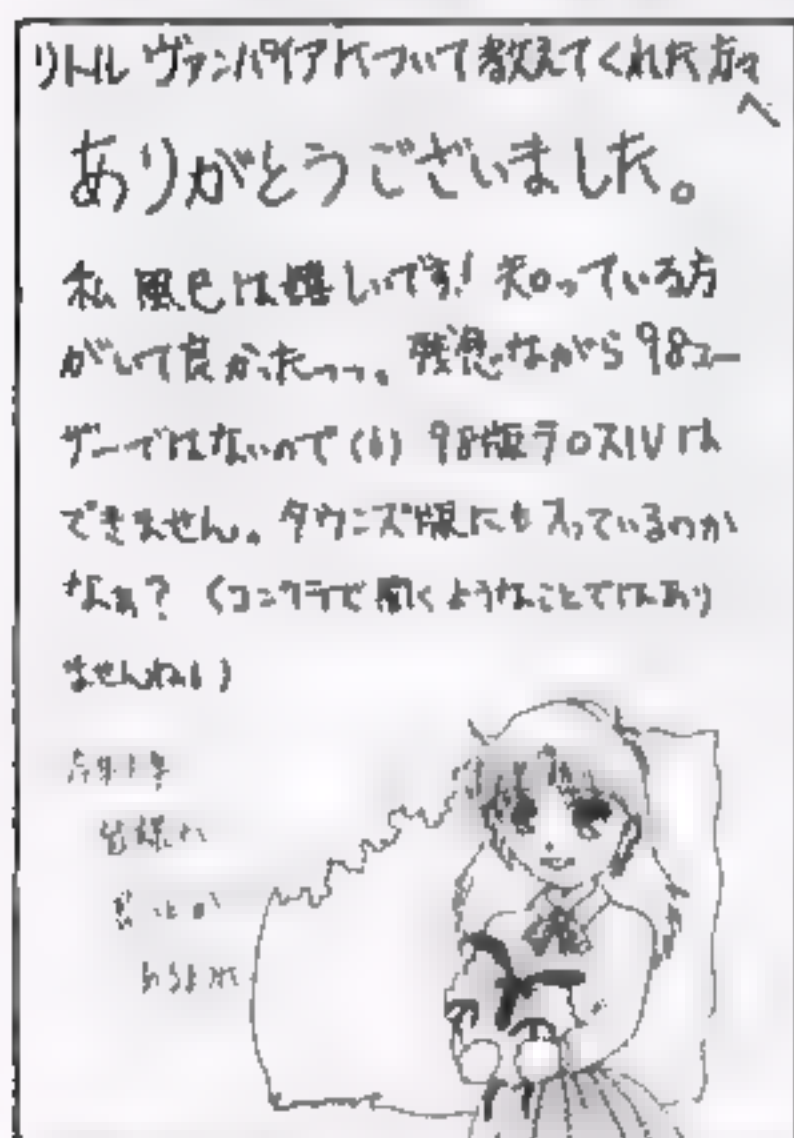 リトルヴァンパイアについて教えてくれた方々
へ
ありがとうございました。
私 風色は嬉しいです! 知っている方
がいて良かったっっ。残念ながら98ユー
ザーではないので(い) 98版ラロスIVは
できません。タウンズ版にも入っているのか
なぁ?(コンクラで聞くようなことではあり
ませんねい)
皆様に